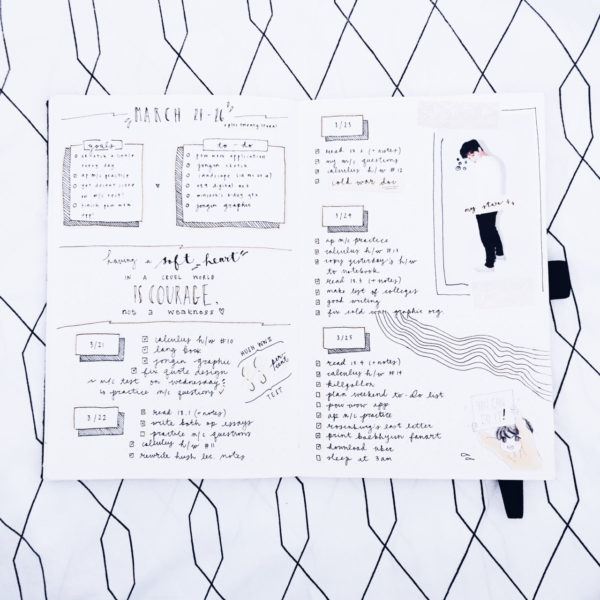 MARCH 21-26
goals
every day
ap m/c practice
to-do
jongin sketch
jongin graphic
having a soft heart
IN A CRUEL WORLD
IS COURAGE,
not a weakness ♡
3/21
calculus h/w #10
lang book
jongin graphic
fix quote design
m/c test on wednesday
practice m/c questions
HUSH WWII
TEST
3/22
read 18.1 (+notes)
write both ap essays
practice m/c questions
calculus h/w #11
rewrite hush lec notes
3/23
read 18.2 (+notes)
m/c questions
calculus h/w #12
cold war doc
my stare is
3/24
ap m/c practice
calculus h/w #13
copy yesterday's h/w
to notebook
read 18.3 (+notes)
make list of colleges
good writing
fix cold war graphic org.
3/25
read 18.4 (+notes)
calculus h/w #14
plan weekend to-do list
pow wow app
ap m/c practice
rosenberg's last letter
print baekhyun fanart
download uber
sleep at 3am